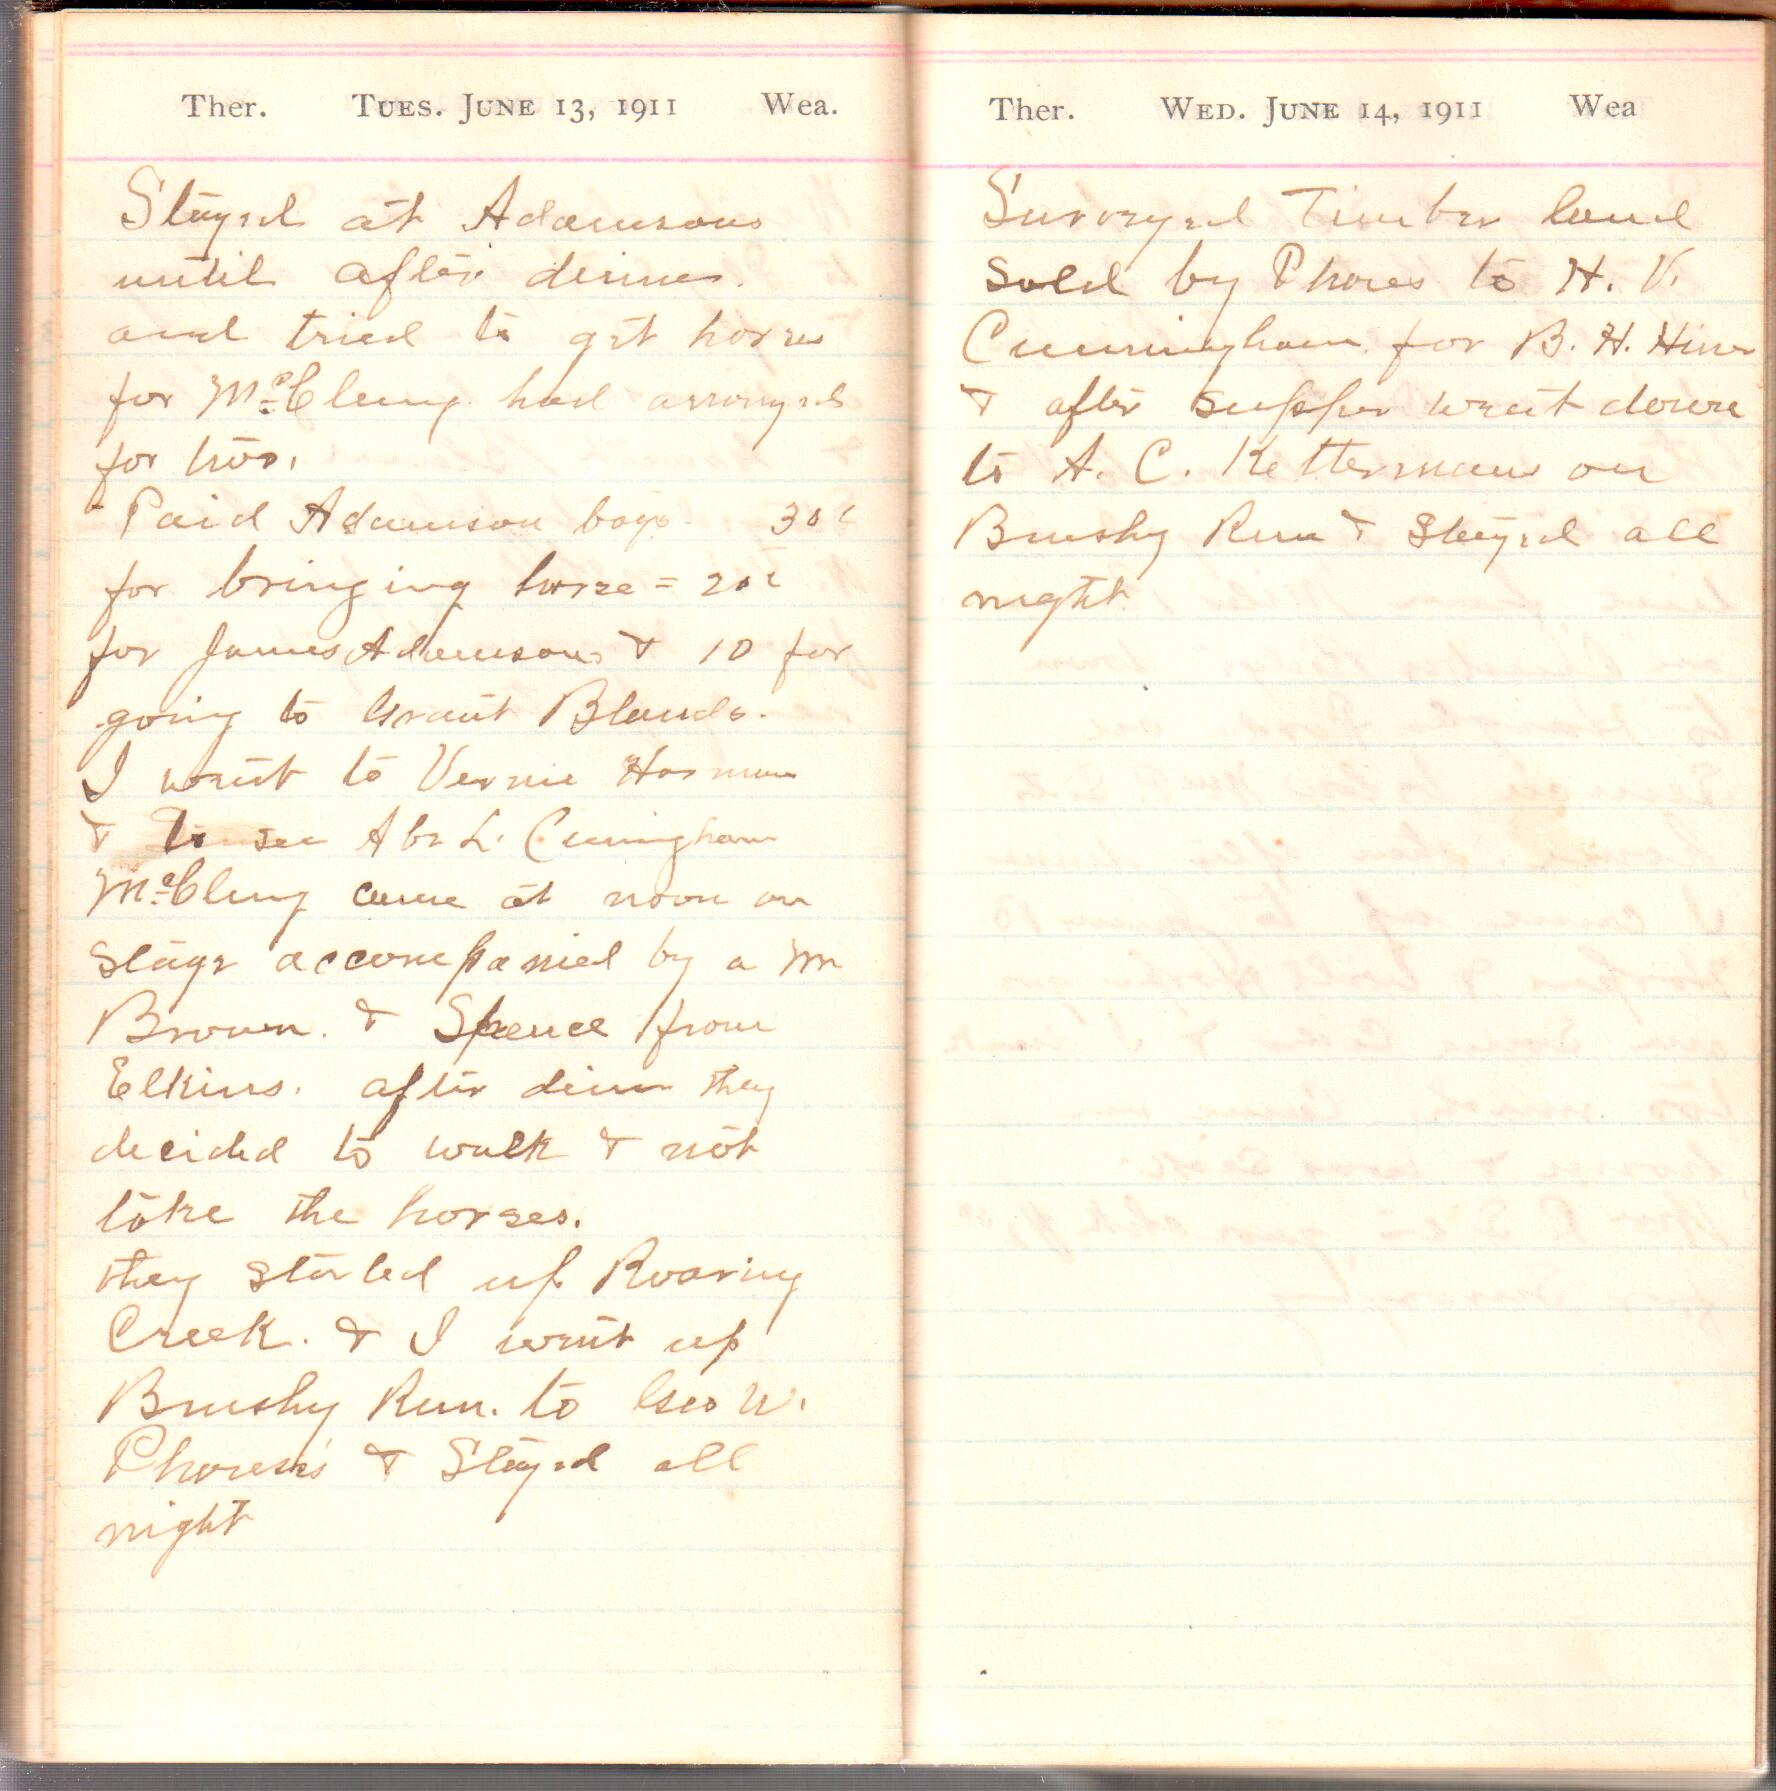 Ther. TUES. JUNE 13, 1911 Wea.
Stayed at Adamsons
until after dinner.
and tried to get horses
for McClung had arranged
for two.
Paid Adamson boys 30¢
for bringing horse = 20¢
for James Adamson & 10 for
going to Grant Blands.
I went to Vernie Harman
& to see Abe L. Cuningham
McClung came at noon on
stage accompanied by a Mr
Brown. & Spence from
Elkins. after dinner they
decided to walk & not
take the horses.
they started up Roaring
Creek. & I went up
Brushy Run. to Geo W.
Phares's & Stayed all
night
Ther. WED. JUNE 14, 1911 Wea
Surveyed Timber land
sold by Phares to H. V.
Cunningham for B. H. Hiner
& after supper went down
to A. C. Kettermans on
Brushy Run & Stayed all
night